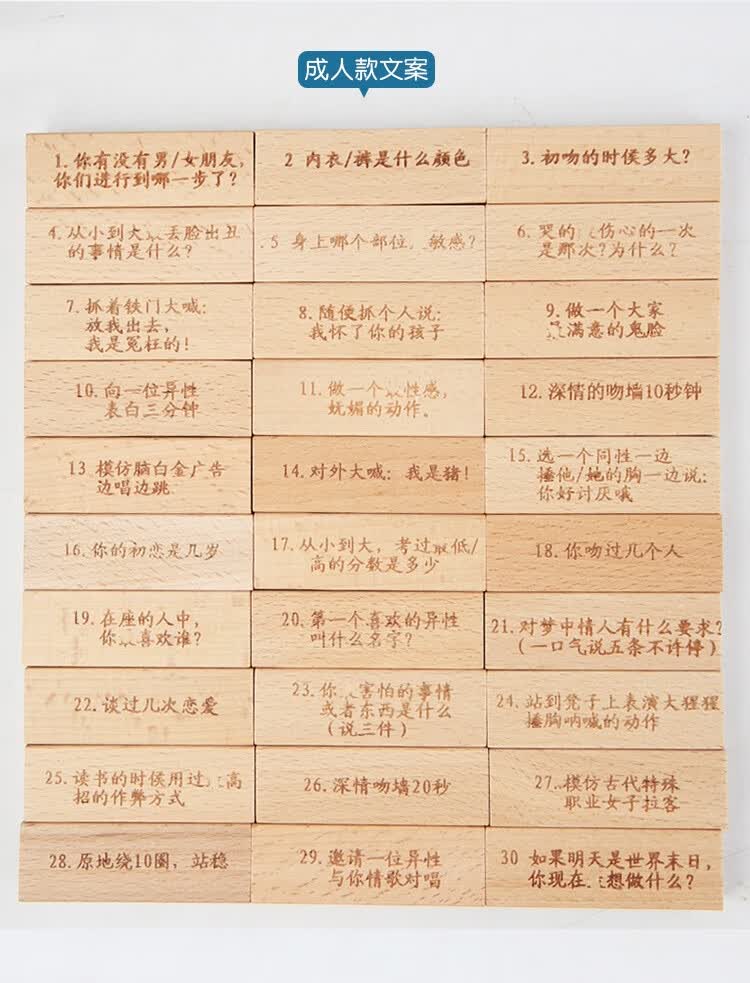 成人款文案
1.你有没有男/女朋友,
你们进行到哪一步了?
2 内衣/裤是什么颜色
3.初吻的时侯多大?
4.从小到大丢脸出丑
的事情是什么?
.5 身上哪个部位敏感?
6.哭的伤心的一次
是那次?为什么?
7.抓着铁门大喊:
放我出去,
我是冤枉的!
8.随便抓个人说:
我怀了你的孩子
9.做一个大家
最满意的鬼脸
10.向一位异性
表白三分钟
11.做一个性感,
妩媚的动作。
12.深情的吻墙10秒钟
13 模仿脑白金广告
边唱边跳
14.对外大喊: 我是猪!
15.选一个同性一边
捶他/她的胸一边说:
你好讨厌哦
16.你的初恋是几岁
17.从小到大, 考过最低/
高的分数是多少
18.你吻过几个人
19.在座的人中,
你喜欢谁?
20.第一个喜欢的异性
叫什么名字?
21.对梦中情人有什么要求?
(一口气说五条不许停)
22.谈过几次恋爱
23.你害怕的事情
或者东西是什么
(说三件)
24.站到凳子上表演大猩猩
捶胸呐喊的动作
25.读书的时侯用过高
招的作弊方式
26.深情吻墙20秒
27.模仿古代特殊
职业女子拉客
28.原地绕10圈, 站稳
29.邀请一位异性
与你情歌对唱
30 如果明天是世界末日,
你现在想做什么?